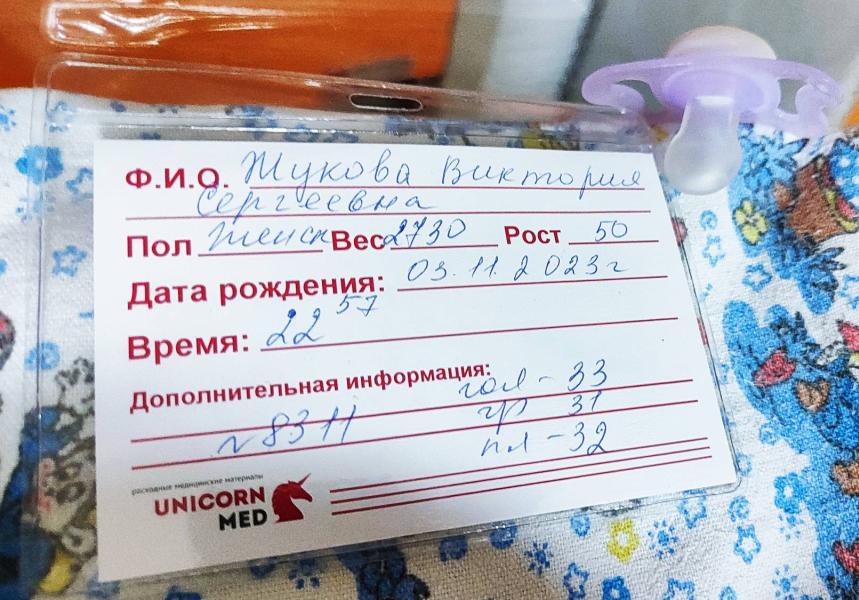 Ф.И.О. Жукова Виктория
Сергеевна
Пол Женск Вес 2730 Рост 50
Дата рождения: 03.11.2023г
Время: 22 57
Дополнительная информация:
гол - 33
гр 31
№8311
пл - 32
расходные медицинские материалы
UNICORN
MED